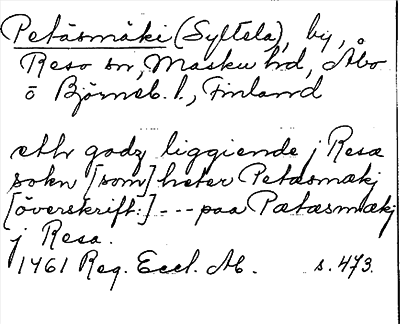 Petäsmäki (Syltela), by,
Reso sn, Masku hd, Åbo
o Björneb. l., Finland
eth godz liggiende j Resa
sokn [som] heter Petæsmækj
[överskrift:] --- paa Pætæsmækj
j Resa.
1461 Reg. Eccl. Ab. s. 473.